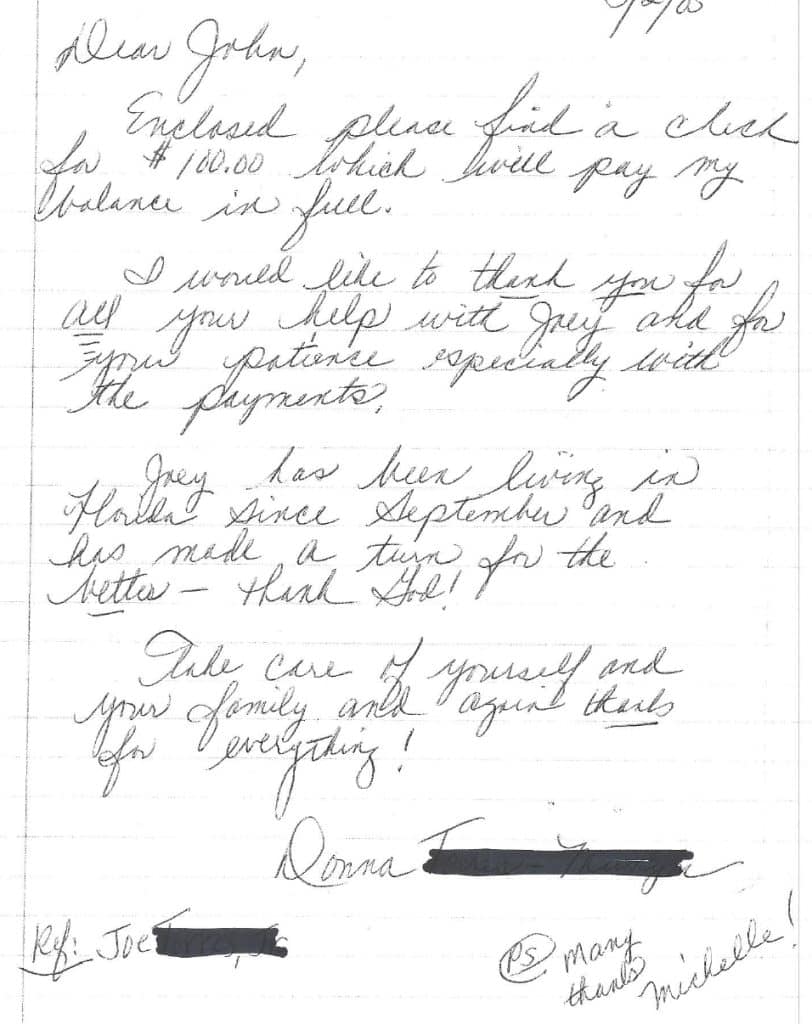 Dear John,
Enclosed please find a check
for $100.00 which will pay my
balance in full.
I would like to thank you for
all your help with Joey and for
your patience especially with
the payments.
Joey has been living in
Florida since September and
has made a turn for the
better – thank God!
Take care of yourself and
your family and again thanks
for everything!
Donna
Ref: Joe
PS many
thanks Michelle!